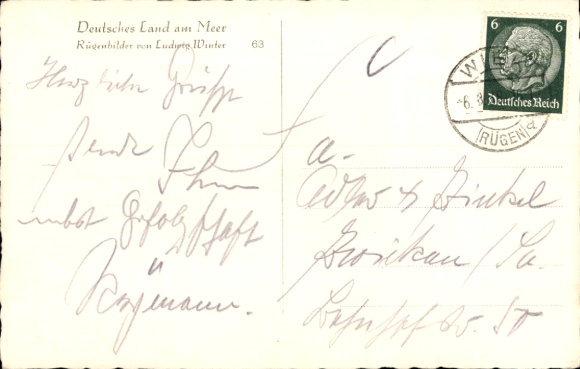 Deutsches Land am Meer
Rügenbilder von Ludwig Winter 63
Herzliche Grüße
sende Ihnen
nebst Gefolgschaft
6 6
Deutsches Reich
(RÜGEN)
a.
Adler &
/Sa.
Bahnhofstr. 50